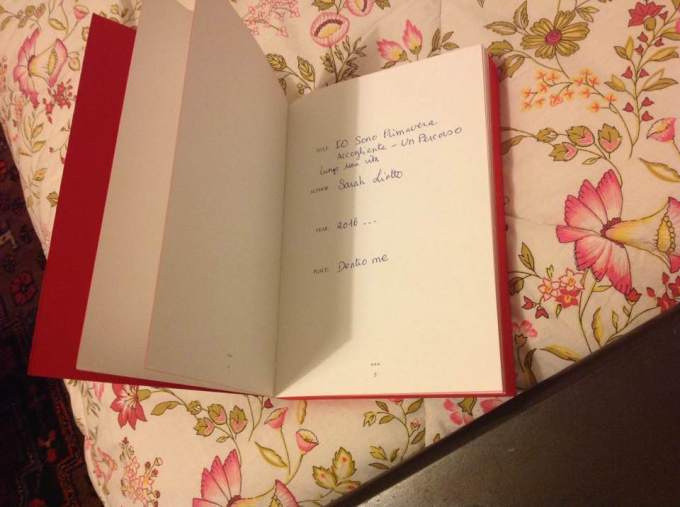 TITLE: IO Sono Primavera
Accogliente - Un Percorso
lungo una vita
AUTHOR: Sarah
YEAR: 2016 ...
PLACE: Dentro me